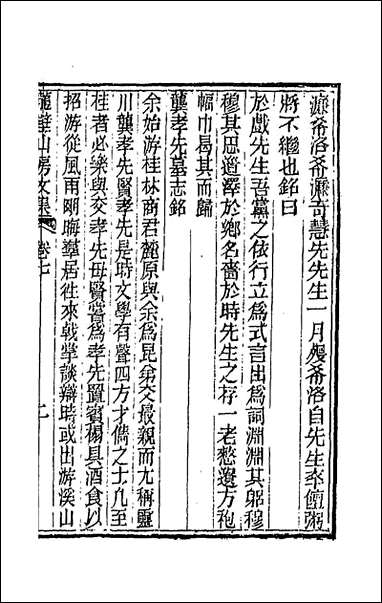 濂希洛希濂奇慧先先生一月殤希洛自先生卒饘粥
將不繼也銘曰
於戲先生吾黨之依行立為式言出為詞淵淵其躬穆
穆其思道譯於鄉名嗇於時先生之存一老憖遺方袍
幅巾曷其而歸
龔孝先墓志銘
余始游桂林商君麓原與余為昆弟交最親而尢稱靈
川龔孝先賢孝先是時文學有聲四方才儁之士凡至
桂者必樂與交孝先母賢嘗為孝先置賓榻具酒食以
招游從風雨剛晦羣居徃來戟掌談辯時或出游溪山
山房文集 卷七 二